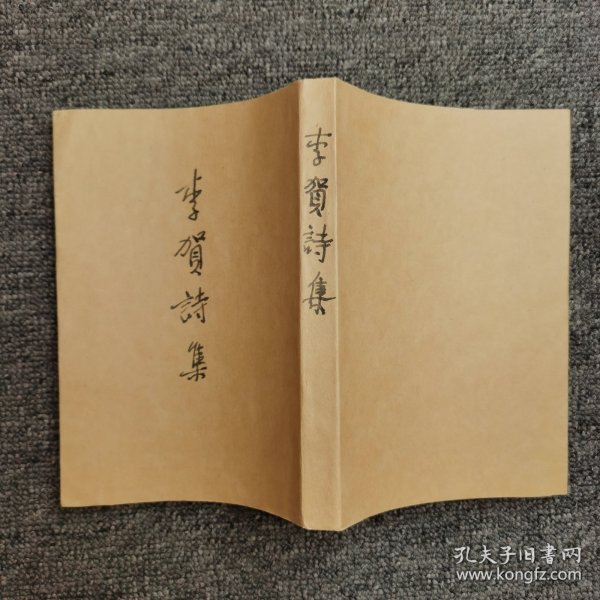 李賀詩集
李賀詩集
孔夫子旧書网
www.kongfz.com